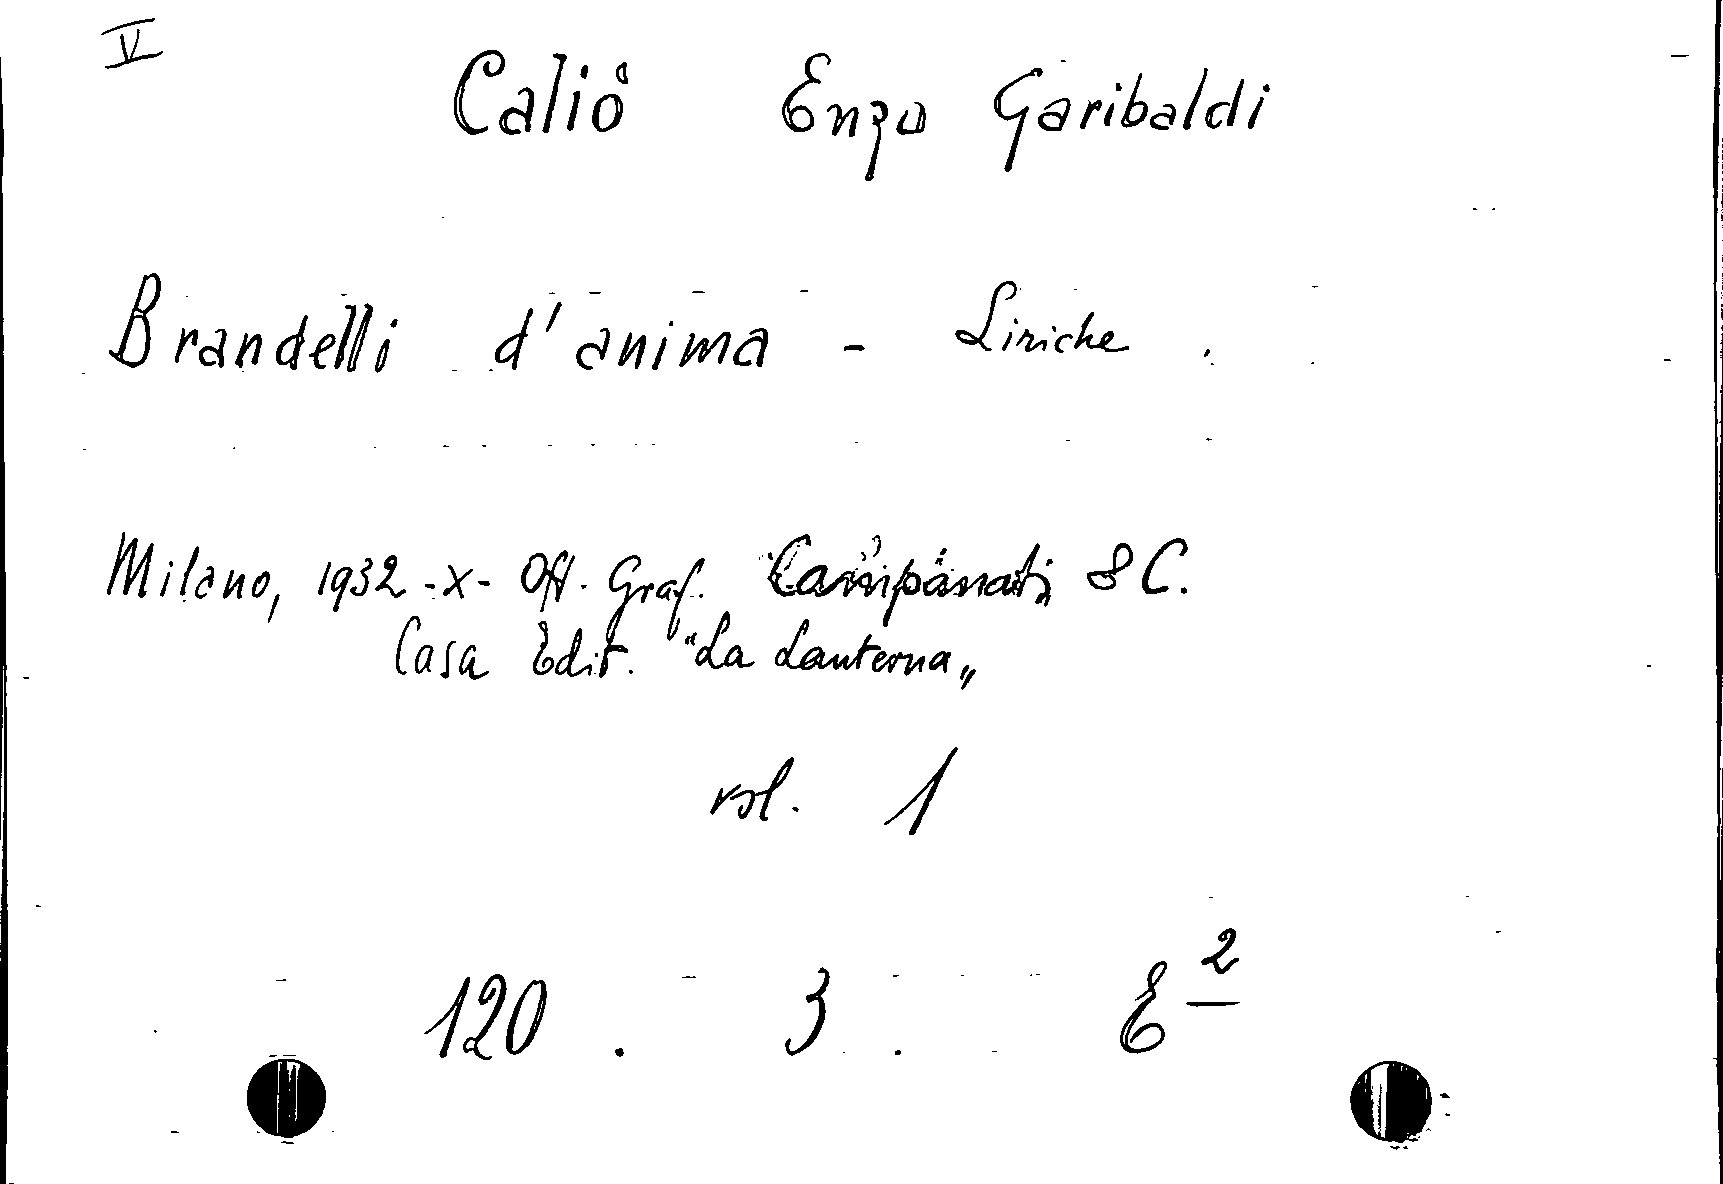 V
Caliò Enzo Garibaldi
Brandelli d'anima - Liriche .
Milano, 1932 -X- Off. Graf. Campanati & C.
Casa Edit. "La Lanterna„
vol. 1
120 . 3 . E²